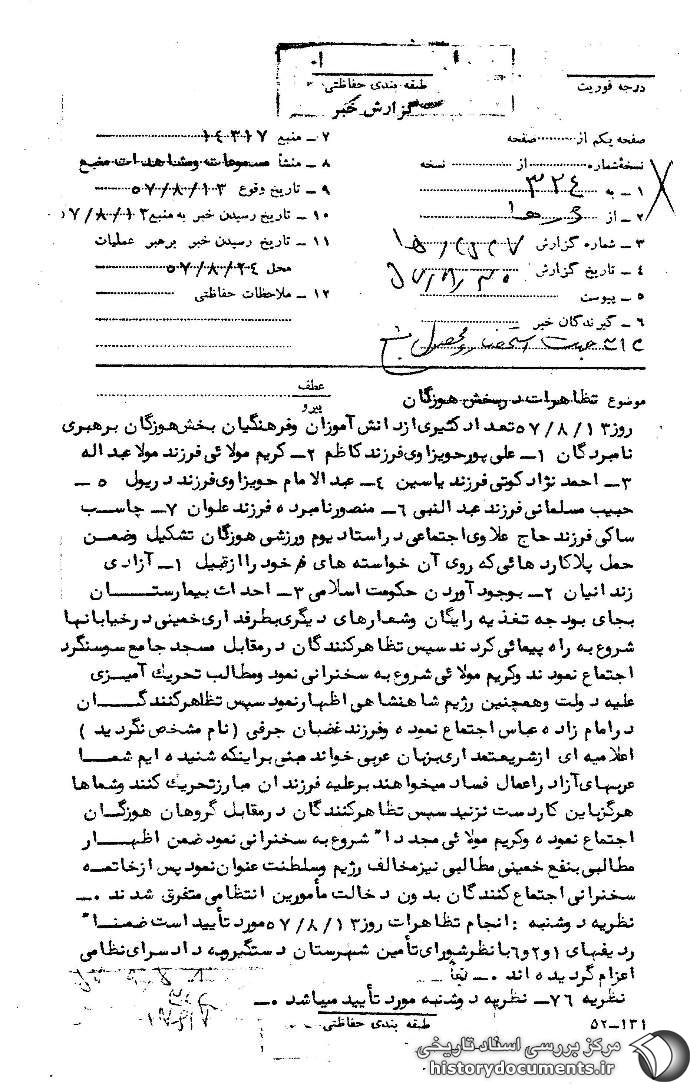 درجه فوریت
طبقه بندی حفاظتی
گزارش خبر
صفحه یکم از صفحه
نسخهٔ شماره از نسخه
۱ـ به ۳۲٤
۲ـ از
۳ـ شماره گزارش
٤ـ تاریخ گزارش
۵ـ پیوست
٦ـ گیرندگان خبر
۷ـ منبع ۱٤۳۱۷
۸ـ منشأ مسموعات و مشاهدات منبع
۹ـ تاریخ وقوع ۵۷/۸/۱۳
۱۰ـ تاریخ رسیدن خبر به منبع ۵۷/۸/۱۳
۱۱ـ تاریخ رسیدن خبر برهبر عملیات
محل ۵۷/۸/۲٤
۱۲ـ ملاحظات حفاظتی
موضوع تظاهرات در بخش هوزگان
عطف
پیرو
روز ۵۷/۸/۱۳ تعداد کثیری از دانش آموزان وفرهنگیان بخش هوزگان برهبری
نامبردگان ۱ـ علی پورحویزاوی فرزند کاظم ۲ـ کریم مولائی فرزند مولا عبد اله
۳ـ احمد نژاد کوتی فرزند یاسین ٤ـ عبد الامام حویزاوی فرزند دریول ۵ـ
حبیب مسلمانی فرزند عبد النبی ٦ـ منصور نامبرده فرزند علوان ۷ـ چاسب
ساکی فرزند حاج علاوی اجتماعی در استادیوم ورزشی هوزگان تشکیل وضمن
حمل پلاکارد هائی که روی آن خواسته های خود را از قبیل ۱ـ آزادی
زندانیان ۲ـ بوجود آوردن حکومت اسلامی ۳ـ احداث بیمارستان
بجای بودجه تغذیه رایگان وشعارهای دیگری بطرفداری خمینی در خیابانها
شروع به راه پیمائی کردند سپس تظاهرکنندگان در مقابل مسجد جامع سوسنگرد
اجتماع نمودند وکریم مولائی شروع به سخنرانی نمود ومطالب تحریک آمیزی
علیه دولت وهمچنین رژیم شاهنشاهی اظهار نمود سپس تظاهرکنندگان
در امام زاده عباس اجتماع نموده وفرزند غضبان جرفی (نام مشخص نگردید)
اعلامیه ای از شریعتمداری بزبان عربی خواند مبنی براینکه شنیده ایم شما
عربهای آزاد را عمال فساد میخواهند برعلیه فرزندان مبارز تحریک کنند وشماها
هرگز باین کار دست نزنید سپس تظاهرکنندگان در مقابل گروهان هوزگان
اجتماع نموده وکریم مولائی مجدداً شروع به سخنرانی نمود ضمن اظهار
مطالبی بنفع خمینی مطالبی نیز مخالف رژیم وسلطنت عنوان نمود پس از خاتمه
سخنرانی اجتماع کنندگان بدون دخالت مأمورین انتظامی متفرق شدند ٠ـ
نظریه دوشنبه : انجام تظاهرات روز ۵۷/۸/۱۳ مورد تأیید است ضمناً
ردیفهای ۱ و ۲ و ٦ با نظر شورای تأمین شهرستان دستگیر و به دادسرای نظامی
اعزام گردیده اند ٠ـ
نظریه ۷٦ـ نظریه دوشنبه مورد تأیید میباشد ٠ـ
۵۲ـ۱۳۱
طبقه بندی حفاظتی
مرکز بررسی اسناد تاریخی
historydocuments.ir